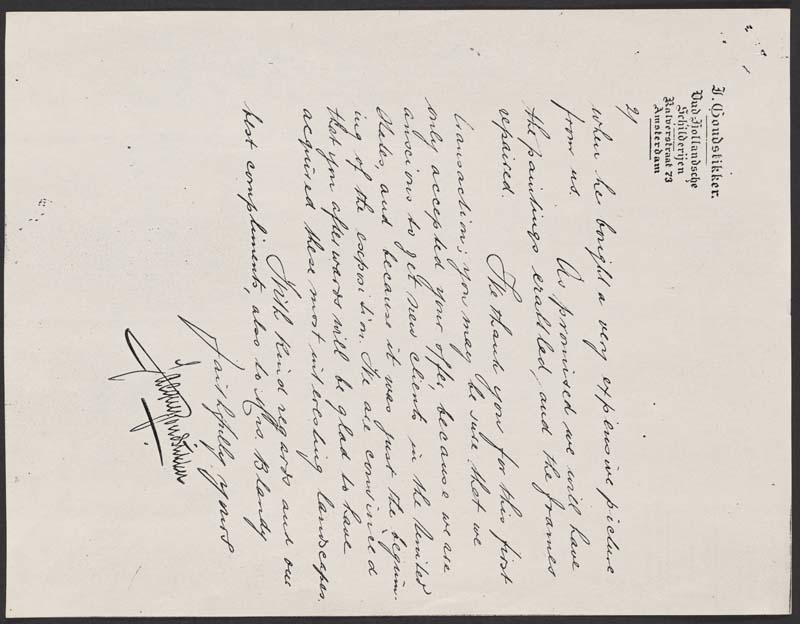 J. Goudstikker.
Oud Hollandsche
Schilderijen
Kalverstraat 73
Amsterdam
2/
when he bought a very expensive picture
from us. As promised we will have
the paintings cradled, and the frames
repaired. We thank you for this first
transaction; you may be sure that we
only accepted your offer, because we are
anscious to get new clients in the United
States, and because it was just the beginn-
ing of the exposition. We are convinced
that you afterwards will be glad to have
acquired these most interesting landscapes.
With kind regards and our
best compliments, also to Mrs. Blandy
Faithfully yours